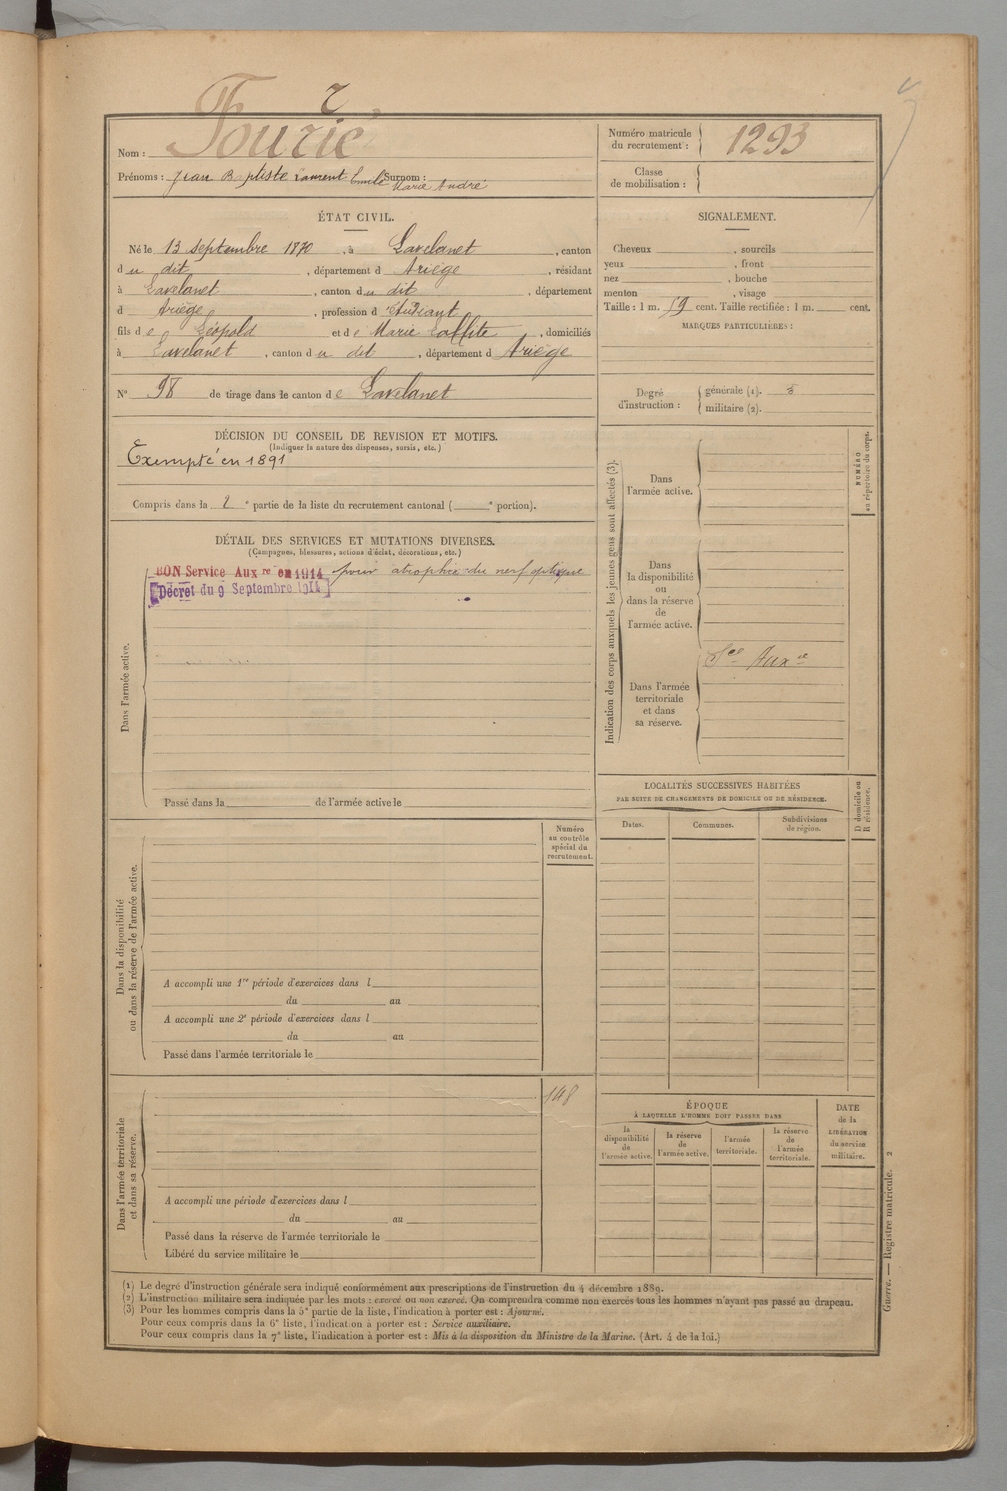 Nom : Fourié
Prénoms : Jean Baptiste Laurent Emile Marie André Surnom :
Numéro matricule du recrutement : 1293
Classe de mobilisation :
ÉTAT CIVIL.
Né le 13 septembre 1870, à Lavelanet, canton
du dit, département d Ariège, résidant
à Lavelanet, canton du dit, département
d Ariège, profession d Etudiant
fils de Léopold et de Marie Laffite, domiciliés
à Lavelanet, canton du dit, département d Ariège
N° 98 de tirage dans le canton de Lavelanet
SIGNALEMENT.
Cheveux , sourcils
yeux , front
nez , bouche
menton , visage
Taille : 1 m. 59 cent. Taille rectifiée : 1 m. cent.
MARQUES PARTICULIÈRES :
Degré d'instruction :
générale (1). 3
militaire (2).
DÉCISION DU CONSEIL DE REVISION ET MOTIFS.
(Indiquer la nature des dispenses, sursis, etc.)
Exempté en 1891
Compris dans la 2e partie de la liste du recrutement cantonal ( e portion).
DÉTAIL DES SERVICES ET MUTATIONS DIVERSES.
(Campagnes, blessures, actions d'éclat, décorations, etc.)
BON Service Auxre en 1914 pour atrophie du nerf optique
Décret du 9 Septembre 1914
Dans l'armée active.
Passé dans la de l'armée active le
Indication des corps auxquels les jeunes gens sont affectés (3).
Dans l'armée active.
Dans la disponibilité ou dans la réserve de l'armée active.
Dans l'armée territoriale et dans sa réserve.
Sce Auxre
NUMÉRO au répertoire du corps.
LOCALITÉS SUCCESSIVES HABITÉES
PAR SUITE DE CHANGEMENTS DE DOMICILE OU DE RÉSIDENCE.
Dates.
Communes.
Subdivisions de région.
D domicile ou R résidence.
Numéro au contrôle spécial du recrutement.
Dans la disponibilité ou dans la réserve de l'armée active.
A accompli une 1re période d'exercices dans l
du au
A accompli une 2e période d'exercices dans l
du au
Passé dans l'armée territoriale le
148
Dans l'armée territoriale et dans sa réserve.
A accompli une période d'exercices dans l
du au
Passé dans la réserve de l'armée territoriale le
Libéré du service militaire le
ÉPOQUE
À LAQUELLE L'HOMME DOIT PASSER DANS
la disponibilité de l'armée active.
la réserve de l'armée active.
l'armée territoriale.
la réserve de l'armée territoriale.
DATE de la LIBÉRATION du service militaire.
(1) Le degré d'instruction générale sera indiqué conformément aux prescriptions de l'instruction du 4 décembre 1889.
(2) L'instruction militaire sera indiquée par les mots : exercé ou non exercé. On comprendra comme non exercés tous les hommes n'ayant pas passé au drapeau.
(3) Pour les hommes compris dans la 5e partie de la liste, l'indication à porter est : Ajourné.
Pour ceux compris dans la 6e liste, l'indication à porter est : Service auxiliaire.
Pour ceux compris dans la 7e liste, l'indication à porter est : Mis à la disposition du Ministre de la Marine. (Art. 4 de la loi.)
Guerre. — Registre matricule. 2